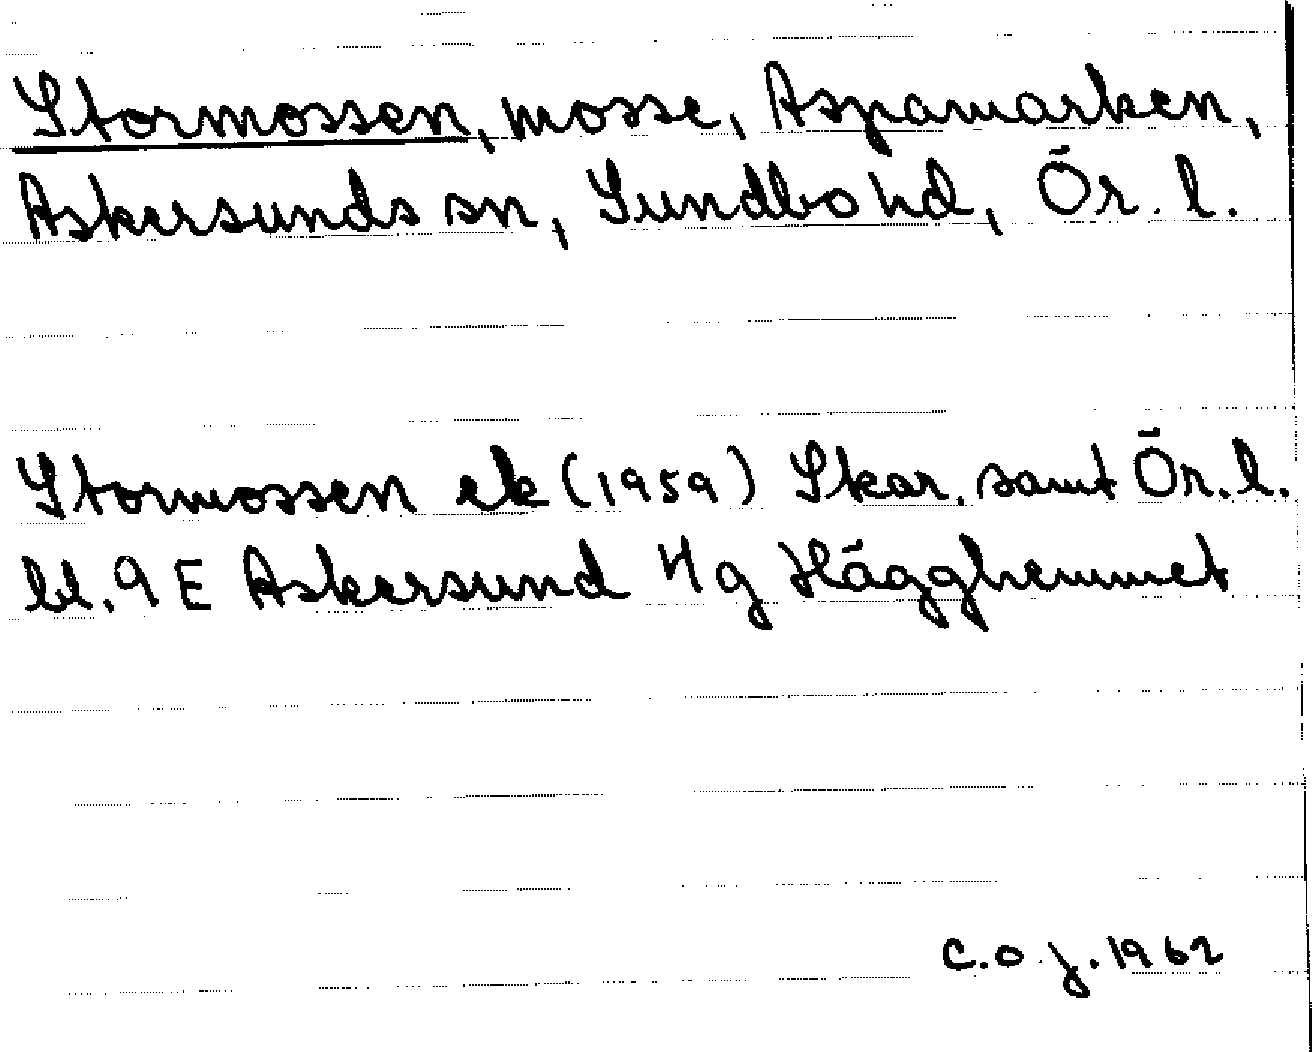 Stormossen, mosse, Aspamarken,
Askersunds sn, Sundbo hd, Ör. l.
Stormossen ek (1959) Skar. samt Ör. l.
bl. 9 E Askersund 4 g Hägghemmet
C.O.J. 1962